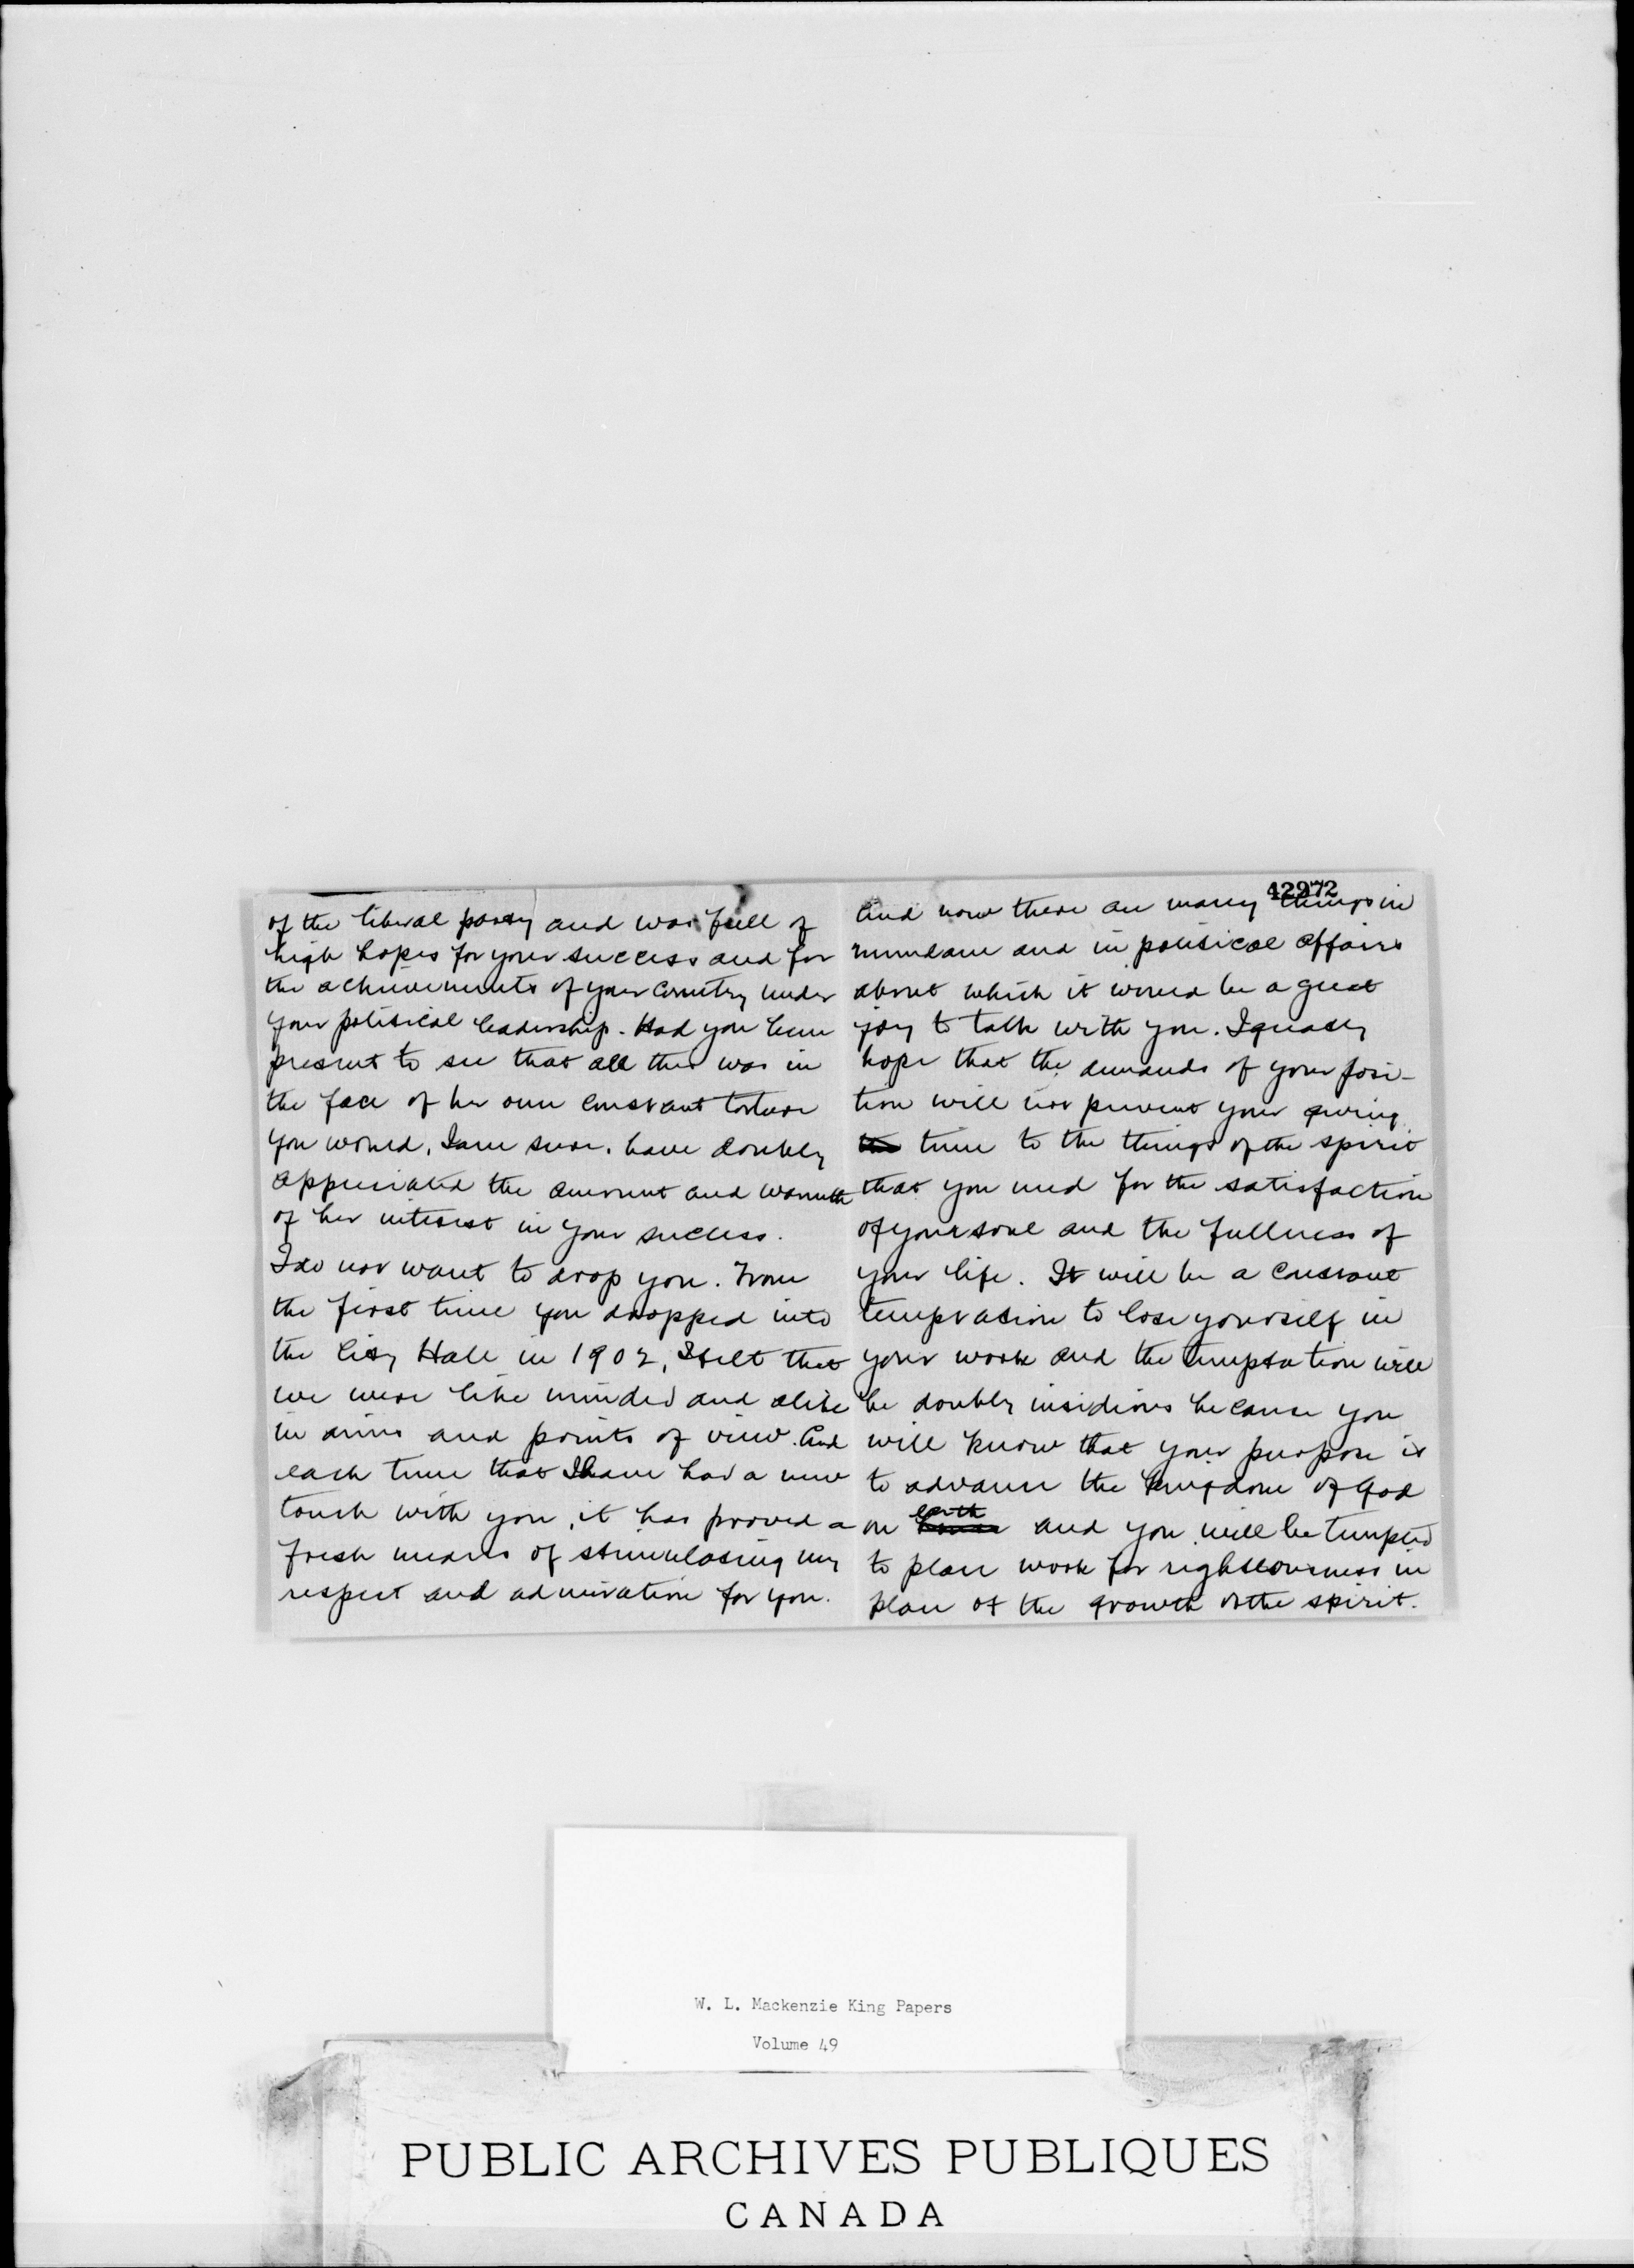 of the liberal party and was full of
high hopes for your success and for
the achievements of your country under
your political leadership. Had you been
present to see that all this was in
the face of her own constant torture
you would, I am sure, have doubly
appreciated the amount and warmth
of her interest in your success.
I do not want to drop you. From
the first time you dropped into
the City Hall in 1902, I felt that
we were like minded and alike
in aims and points of view. And
each time that I have had a new
touch with you, it has proved a
fresh means of stimulating my
respect and admiration for you.
42972
And now there are many things in
mundane and in political affairs
about which it would be a great
joy to talk with you. I greatly
hope that the demands of your posi-
tion will not prevent your giving
time to the things of the spirit
that you need for the satisfaction
of your soul and the fullness of
your life. It will be a constant
temptation to lose yourself in
your work and the temptation will
be doubly insidious because you
will know that your purpose is
to advance the kingdom of God
on earth and you will be tempted
to plan work for righteousness in
place of the growth of the spirit.
W. L. Mackenzie King Papers
Volume 49
PUBLIC ARCHIVES PUBLIQUES
CANADA